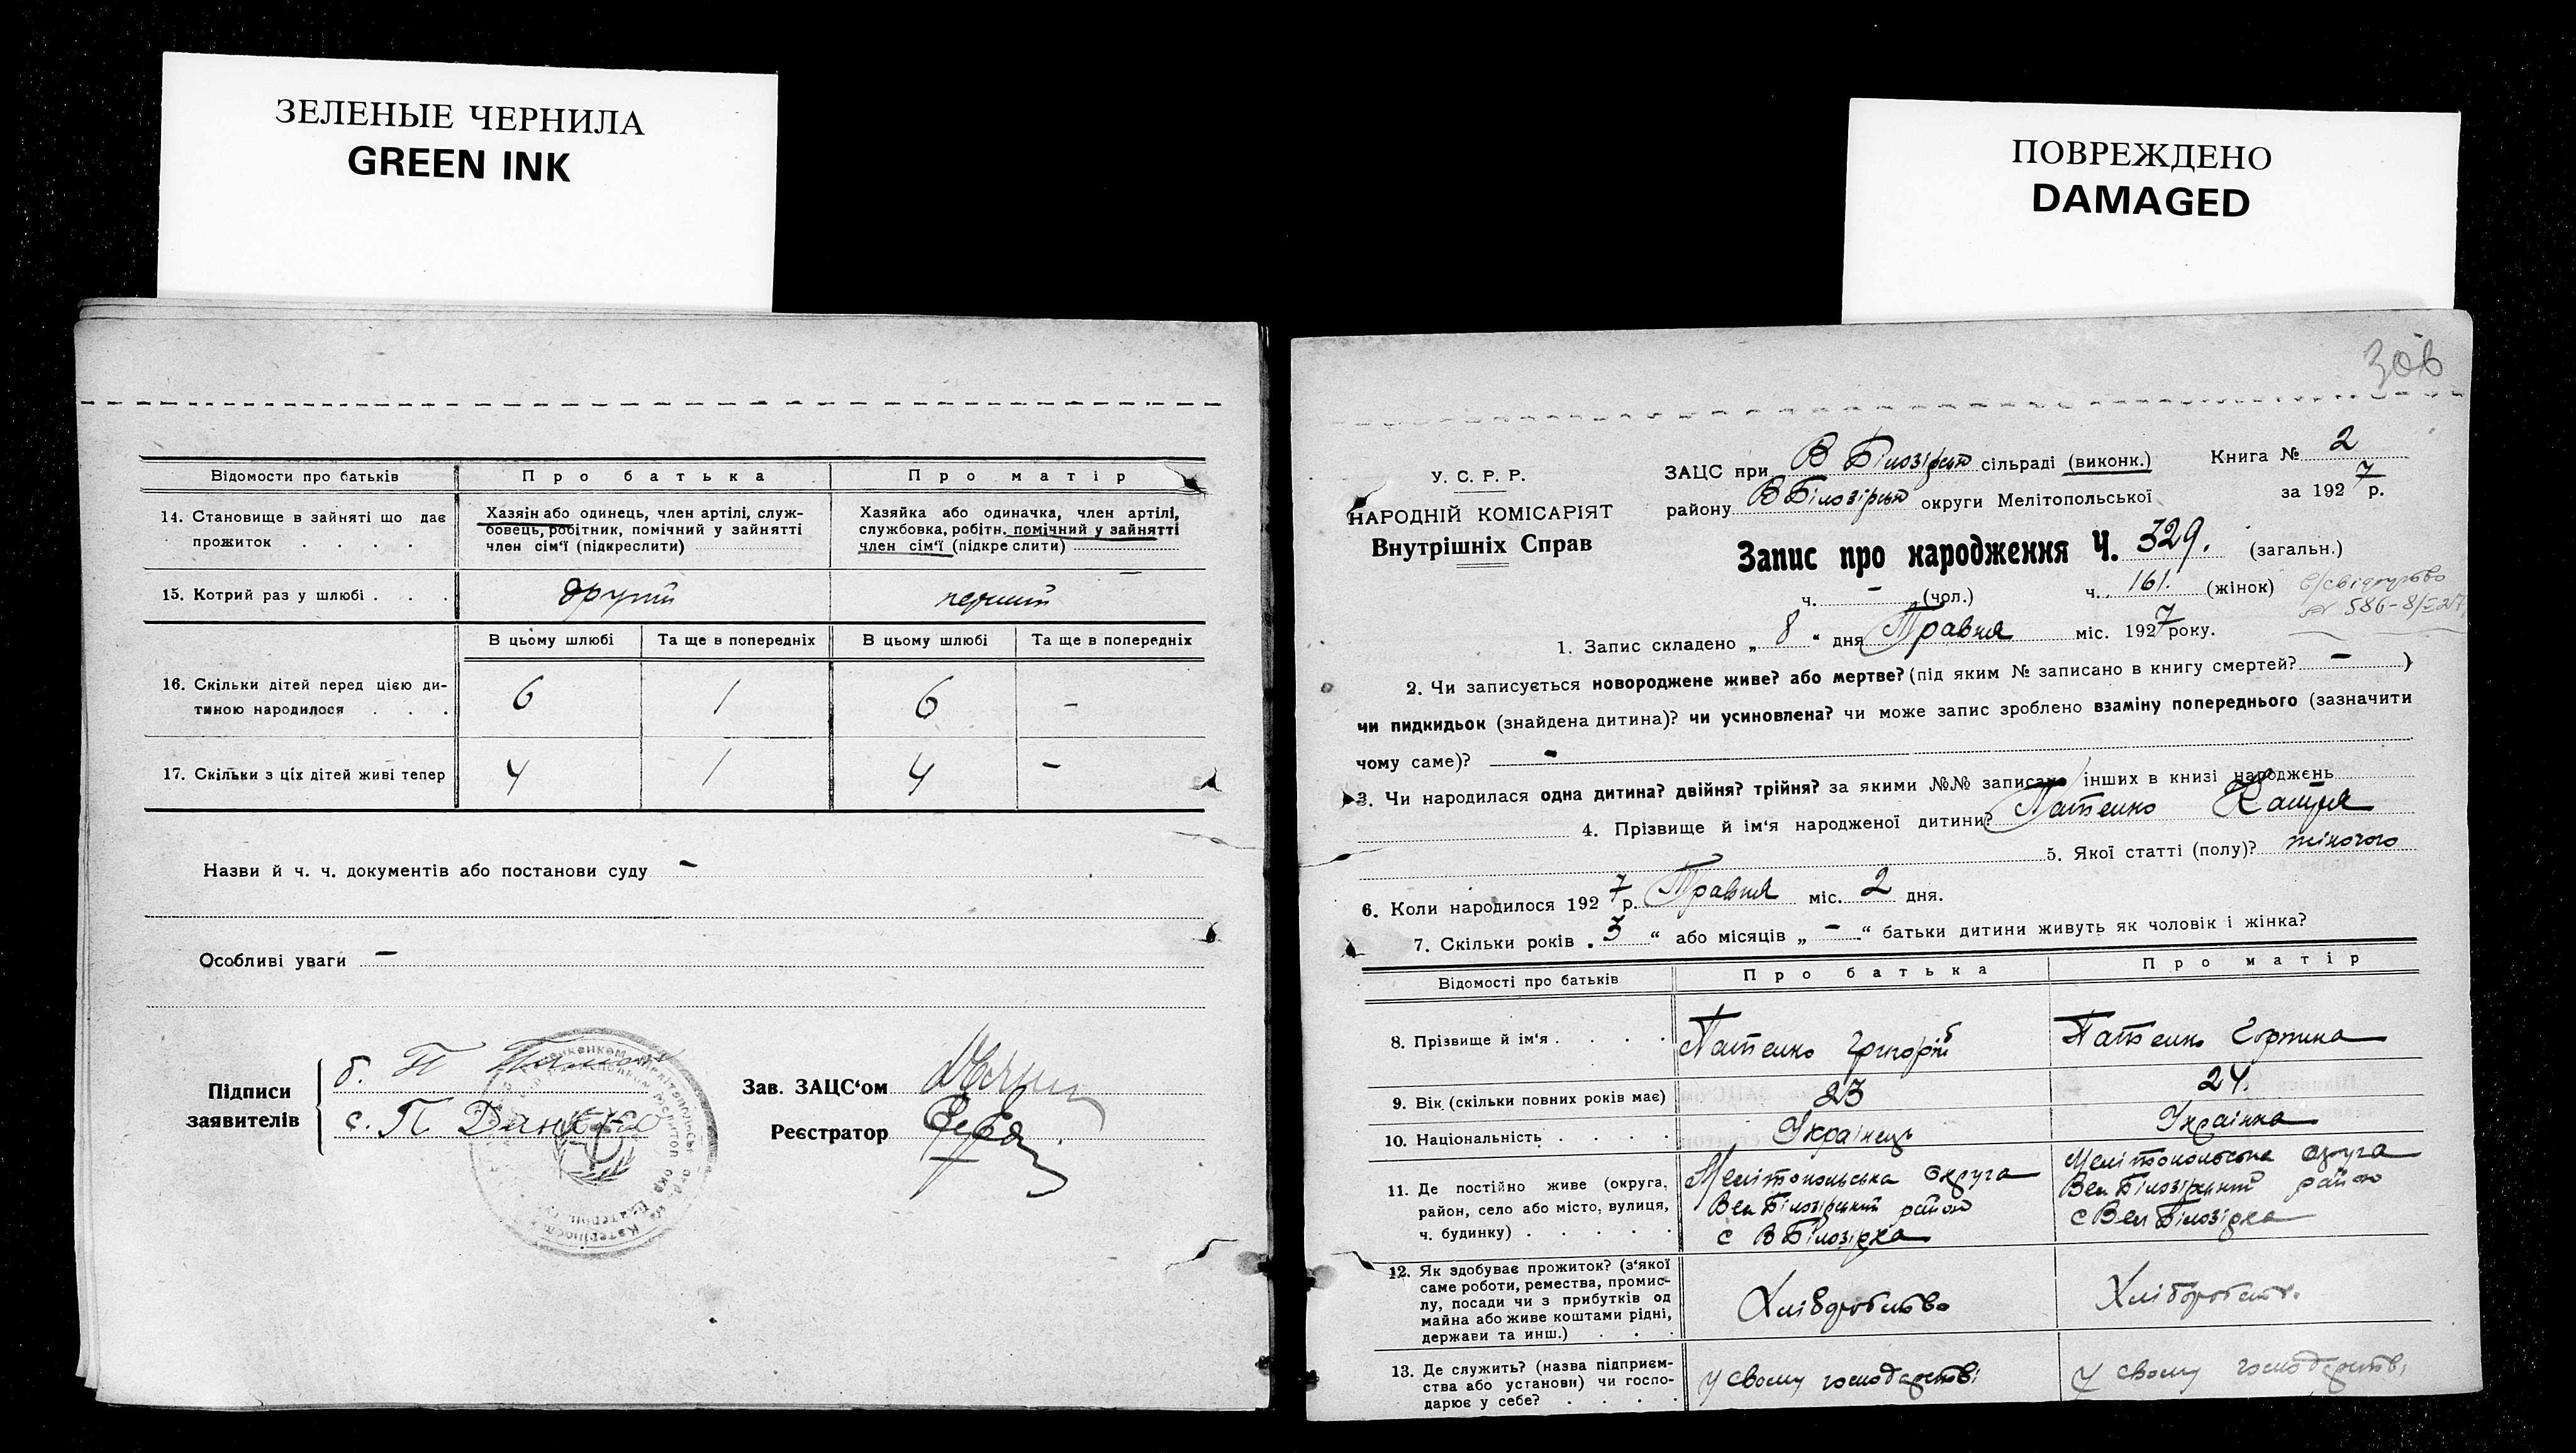 ЗЕЛЕНЫЕ ЧЕРНИЛА
GREEN INK
ПОВРЕЖДЕНО
DAMAGED
Відомости про батьків
Про батька
Про матір
14. Становище в зайняті що дає прожиток . . . .
Хазяін або одинець, член артілі, служ-
бовець, робітник, помічний у зайнятті
член сім'ї (підкреслити)
Хазяйка або одиначка, член артілі,
службовка, робітн. помічний у зайнятті
член сім'ї (підкреслити)
15. Котрий раз у шлюбі . . .
другий
перший
В цьому шлюбі
Та ще в попередніх
В цьому шлюбі
Та ще в попередніх
16. Скільки дітей перед цією ди-
тиною народилося . . .
6
1
6
-
17. Скільки з ціх дітей живі тепер
4
1
4
-
Назви й ч. ч. документів або постанови суду -
Особливі уваги -
Підписи
заявителів
б. П
с. П
Зав. ЗАЦС'ом
Реєстратор
306
У. С. Р. Р.
НАРОДНІЙ КОМІСАРІЯТ
Внутрішніх Справ
ЗАЦС при В Білозірськ сільраді (виконк.)
Книга № 2
району В Білозірськ округи Мелітопольської
за 1927 р.
Запис про народження Ч. 329. (загальн.)
ч. - (чол.) ч. 161. (жінок)
1. Запис складено „ 8 “ дня Травня міс. 1927 року.
2. Чи записується новороджене живе? або мертве? (під яким № записано в книгу смертей? - )
чи пидкидьок (знайдена дитина)? чи усиновлена? чи може запис зроблено взаміну попереднього (зазначити
чому саме)? -
3. Чи народилася одна дитина? двійня? трійня? за якими №№ записано інших в книзі народжень
4. Прізвище й ім'я народженої дитини?
5. Якої статті (полу)? жіночого
6. Коли народилося 1927 р. Травня міс. 2 дня.
7. Скільки років „ 3 “ або місяців „ - “ батьки дитини живуть як чоловік і жінка?
Відомості про батьків
Про батька
Про матір
8. Прізвище й ім'я . . . .
Григорій
9. Вік (скільки повних років має)
23
24.
10. Національність . . . .
Українець
Українка
11. Де постійно живе (округа,
район, село або місто, вулиця,
ч. будинку) . . . . .
Мелітопольська Округа
Вел Білозірський район
с В Білозірка
Мелітопольська Округа
Вел Білозірський район
с Вел Білозірка
12. Як здобуває прожиток? (з'якої
саме роботи, ремества, промис-
лу, посади чи з прибутків од
майна або живе коштами рідні,
держави та инш.) . . .
Хліборобство
13. Де служить? (назва підприєм-
ства або установи) чи госпо-
дарює у себе? . . . .
у своему господарстві
у своему господарстві